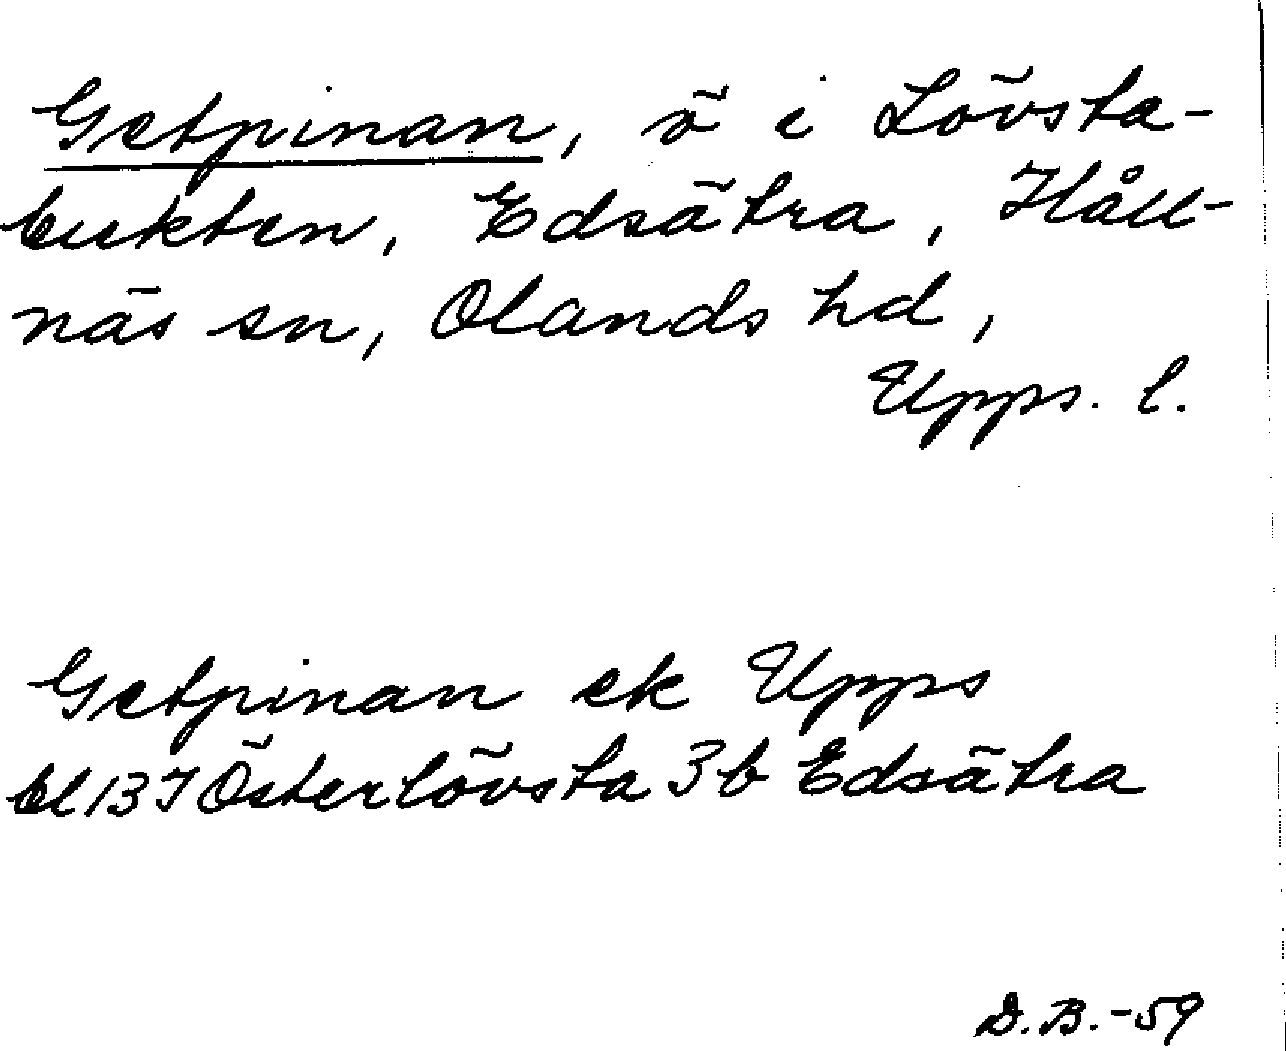 Getpinan, ö i Lövsta-
bukten, Edsätra, Håll-
näs sn, Olands hd,
Upps. l.
Getpinan ek Upps
bl 13 I Österlövsta 3b Edsätra
D.B.-59